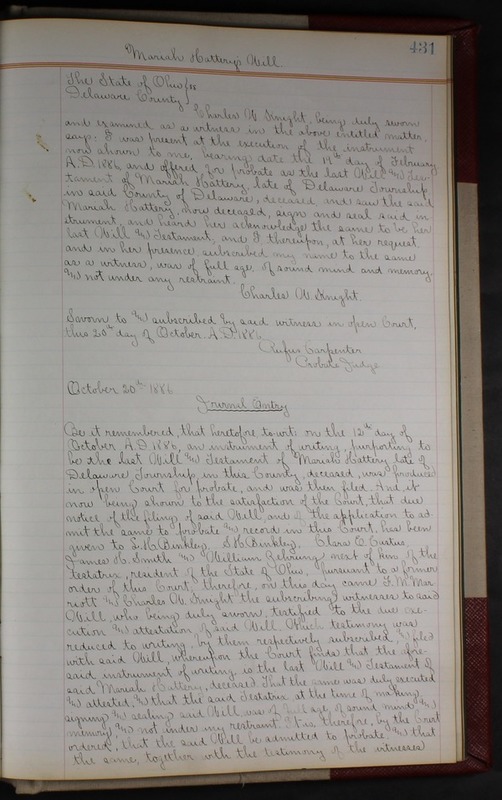 431
Mariah Hattery's Will
The State of Ohio } ss
Delaware County }
Charles W. Knight, being duly sworn
and examined as a witness in the above entitled matter,
says: I was present at the execution of the instrument
now shown to me, bearing date the 19th day of February
A.D. 1886, and offered for probate as the last Will & Tes-
tament of Mariah Hattery, late of Delaware Township,
in said County of Delaware, deceased, and saw the said
Mariah Hattery, now deceased, sign and seal said in-
strument, and heard her acknowledge the same to be her
last Will & Testament, and I, thereupon, at her request
and in her presence, subscribed my name to the same
as a witness, was of full age, of sound mind and memory
& not under any restraint.
Charles W. Knight.
Sworn to & subscribed by said witness in open Court,
this 20th day of October A.D. 1886
Rufus Carpenter
Probate Judge
October 20th 1886
Journal Entry
Be it remembered, that heretofore to wit: on the 12th day of
October A.D. 1886, an instrument of writing, purporting to
be the last Will & Testament of Mariah Hattery late of
Delaware Township, in this County, deceased, was produced
in open Court for probate, and was then filed. And it
now being shown to the satisfaction of the Court, that due
notice of the filing of said Will, and of the application to ad-
mit the same to probate & record in this Court, has been
given to Binkley, Binkley, Clara C. Curtus
James H. Smith & William Gehring next of kin of the
testatrix, resident of the State of Ohio, pursuant to a former
order of this Court, therefore, on this day came F. M. Mar-
riott & Charles W. Knight the subscribing witnesses to said
Will, who being duly sworn, testified to the due exe-
cution & attestation of said Will. Which testimony was
reduced to writing, by them respectively subscribed, & filed
with said Will, whereupon the Court finds that the afore-
said instrument of writing is the last Will & Testament of
said Mariah Hattery, deceased That the same was duly executed
& attested; & that the said Testatrix at the time of making,
signing & sealing said Will, was of full age, of sound mind &
memory & not under any restraint. It is, therefore, by the Court
ordered, that the said Will be admitted to probate, & that
the same, together with the testimony of the witnesses